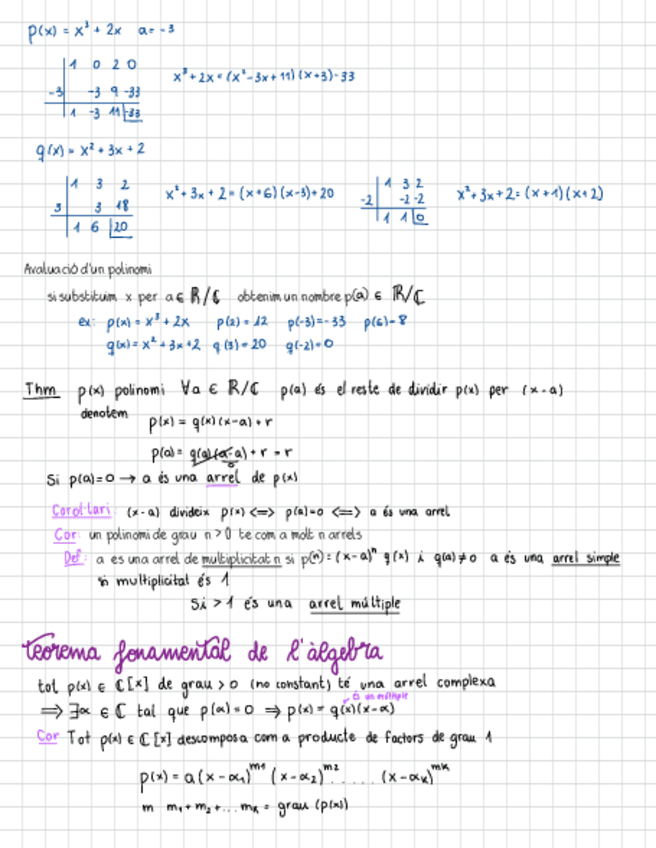 p(x) = x³ + 2x   a = -3
1 0 2 0
x³ + 2x = (x² - 3x + 11)(x+3) - 33
-3 | -3 9 -33
1 -3 11 -33
q(x) = x² + 3x + 2
1 3 2
x² + 3x + 2 = (x+6)(x-3) + 20
1 3 2
x² + 3x + 2 = (x+1)(x+2)
3 | 3 18
-2 | -2 -2
1 6 20
1 1 0
Avaluació d'un polinomi
si substituim x per a ∈ ℝ/ℂ obtenim un nombre p(a) ∈ ℝ/ℂ
ex: p(x) = x³ + 2x   p(2) = 12   p(-3) = -33   p(6) = 8
q(x) = x² + 3x + 2   q(3) = 20   q(-2) = 0
Thm p(x) polinomi ∀a ∈ ℝ/ℂ p(a) és el reste de dividir p(x) per (x-a)
denotem
p(x) = q(x)(x-a) + r
p(a) = q(a)(a-a) + r = r
0
Si p(a)=0 → a és una arrel de p(x)
Corol·lari: (x-a) divideix p(x) <=> p(a)=0 <=> a és una arrel
Cor: un polinomi de grau n > 0 te com a molt n arrels
Def: a es una arrel de multiplicitat n si p(n) = (x-a)ⁿ q(x) i q(a) ≠ 0 a és una arrel simple
si multiplicitat és 1
Si > 1 és una arrel múltiple
Teorema fonamental de l'àlgebra
tot p(x) ∈ ℂ[x] de grau > 0 (no constant) té una arrel complexa
és un múltiple
⟹ ∃α ∈ ℂ tal que p(α) = 0 ⟹ p(x) = q(x)(x-α)
Cor Tot p(x) ∈ ℂ[x] descomposa com a producte de factors de grau 1
p(x) = a(x-α₁)^m1 (x-α₂)^m2 ...... (x-αₖ)^mk
m m₁ + m₂ + ... mₖ = grau (p(x))